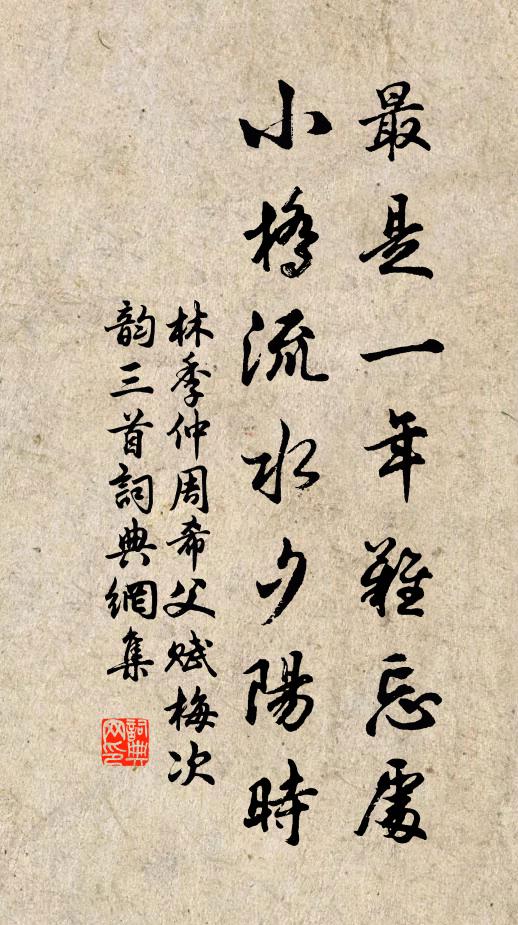 最是一年難忘處
小橋流水夕陽時
林季仲周希父賦梅次
韵三首詞典網集
詞典
网印